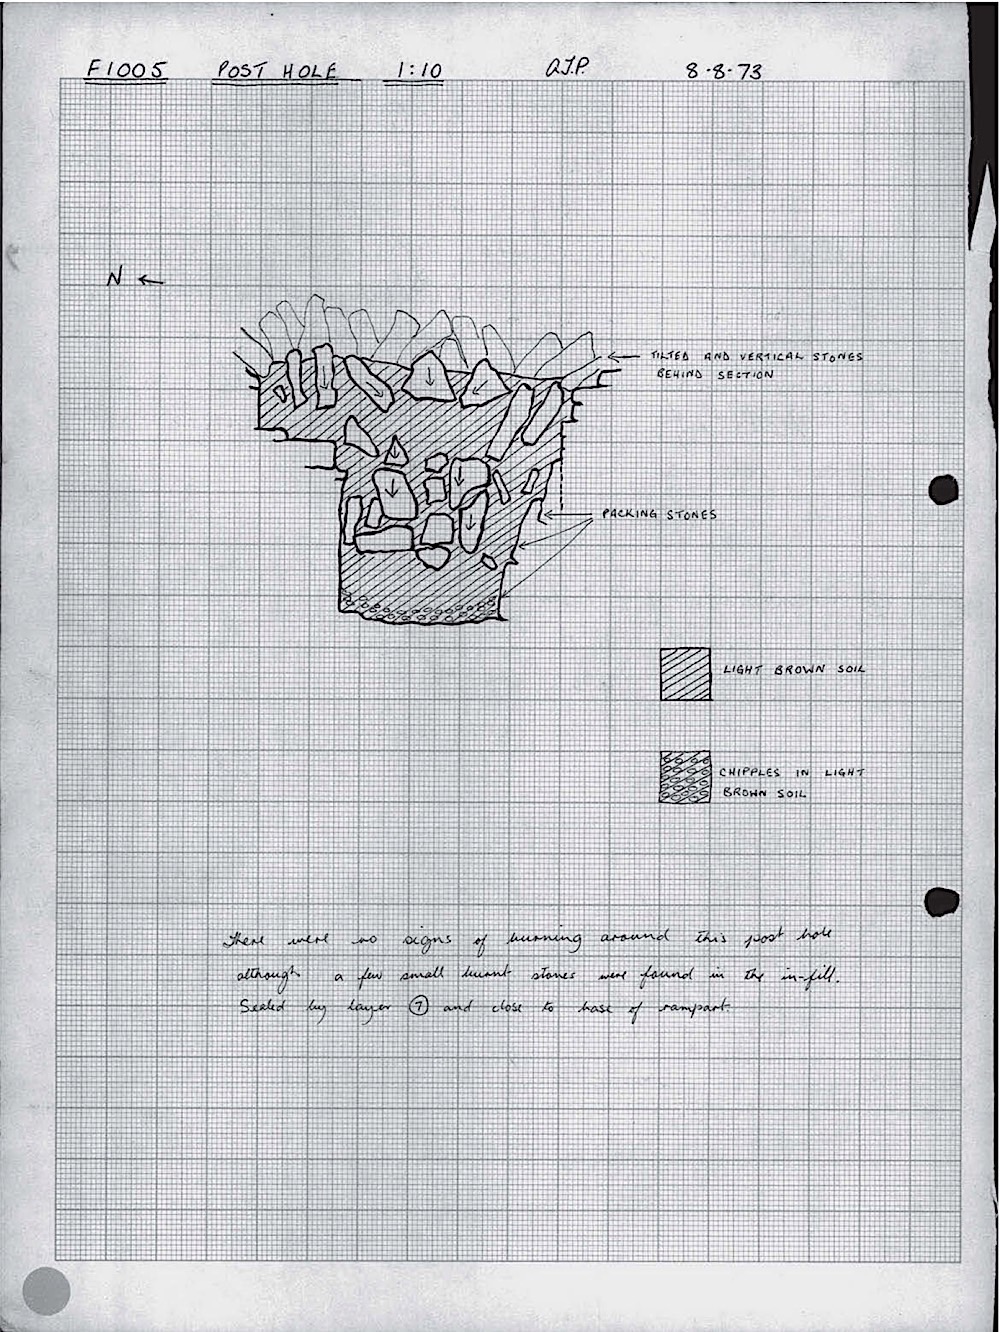 F1005 POST HOLE 1:10 A.J.P. 8-8-73
N ←
TILTED AND VERTICAL STONES
BEHIND SECTION
PACKING STONES
LIGHT BROWN SOIL
CHIPPLES IN LIGHT
BROWN SOIL
There were no signs of burning around this post hole
although a few small burnt stones were found in the in-fill.
Sealed by layer ⑦ and close to base of rampart.